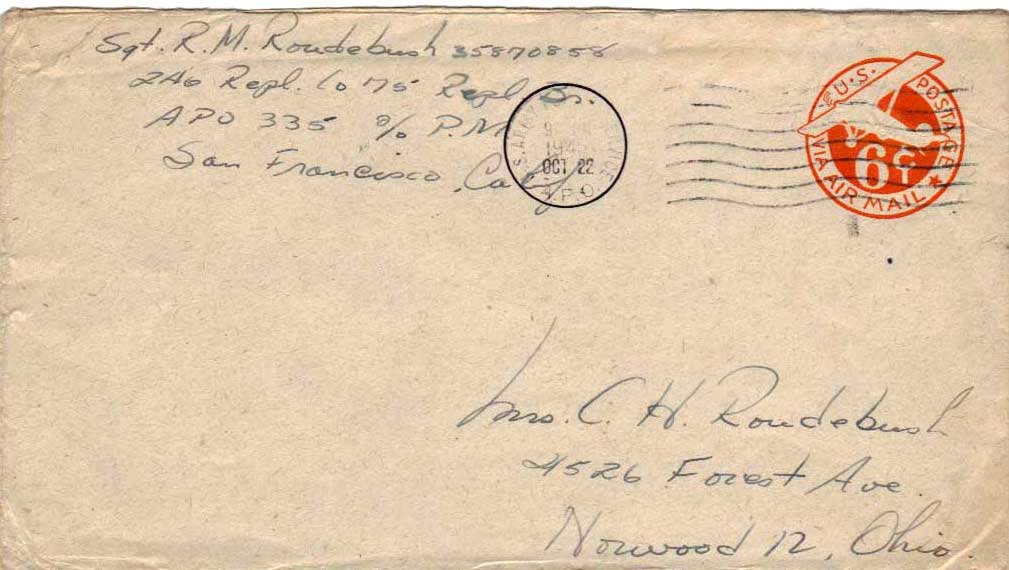 Sgt. R. M. Roudebush 35870858
246 Repl. Co 75 Repl. Bn.
APO 335 c/o P.M.
San Francisco, Calif
U.S. ARMY
1945
OCT 22
A.P.O.
U.S. POSTAGE
6¢
VIA AIR MAIL
Mrs. C. H. Roudebush
4526 Forest Ave.
Norwood 12, Ohio.